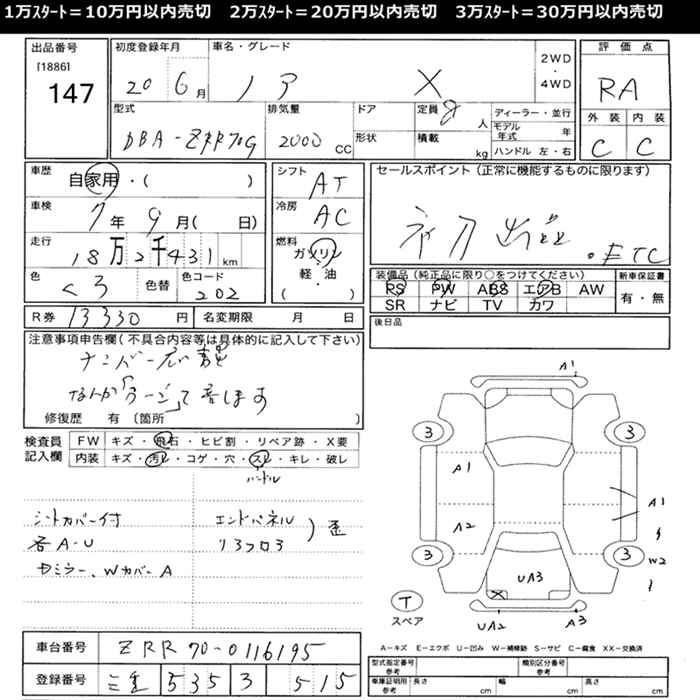 1万スタート＝10万円以内売切　2万スタート＝20万円以内売切　3万スタート＝30万円以内売切
出品番号
[1886]
147
初度登録年月
20 6月
車名・グレード
ノア X
2WD
・
4WD
評価点
RA
外装 内装
C C
型式
DBA-ZRR70G
排気量
2000 CC
ドア
形状
定員 8人
積載 kg
ディーラー・並行
モデル年式 年
ハンドル 左・右
車歴
自家用・( )
車検
7年 9月( 日)
走行
18万2千431km
色
くろ
色替
色コード
202
シフト
AT
冷房
AC
燃料
ガソリン
・
軽・油
( )
セールスポイント (正常に機能するものに限ります)
初刀出品 . ETC
装備品 (純正品に限り○をつけてください)
PS PW ABS エアB AW
SR ナビ TV カワ
新車保証書
有・無
R券 13330円
名変期限 月 日
後日品
注意事項申告欄(不具合内容等は具体的に記入して下さい)
ナンバー
なんか「ゴーゴー」って音します
修復歴 有 〔箇所 )
検査員
記入欄
FW キズ・飛石・ヒビ割・リペア跡・X要
内装 キズ・汚レ・コゲ・穴・スレ・キレ・破レ
ハンドル
シートカバー付
各A-U
ドミラー、WカバーA
エンドパネル
リヨフロア
) 歪
A1
3 3
A1 A1
A2
W2
3 3
UA3
T
スペア
UA2 A3
A－キズ E－エクボ U－凹み W－補修跡 S－サビ C－腐食 XX－交換済
車台番号 ZRR70-0116195
登録番号 三重 535 3 515
型式指定番号
参考
類別区分番号
参考
車庫証明用
参考
長さ cm
幅 cm
高さ cm